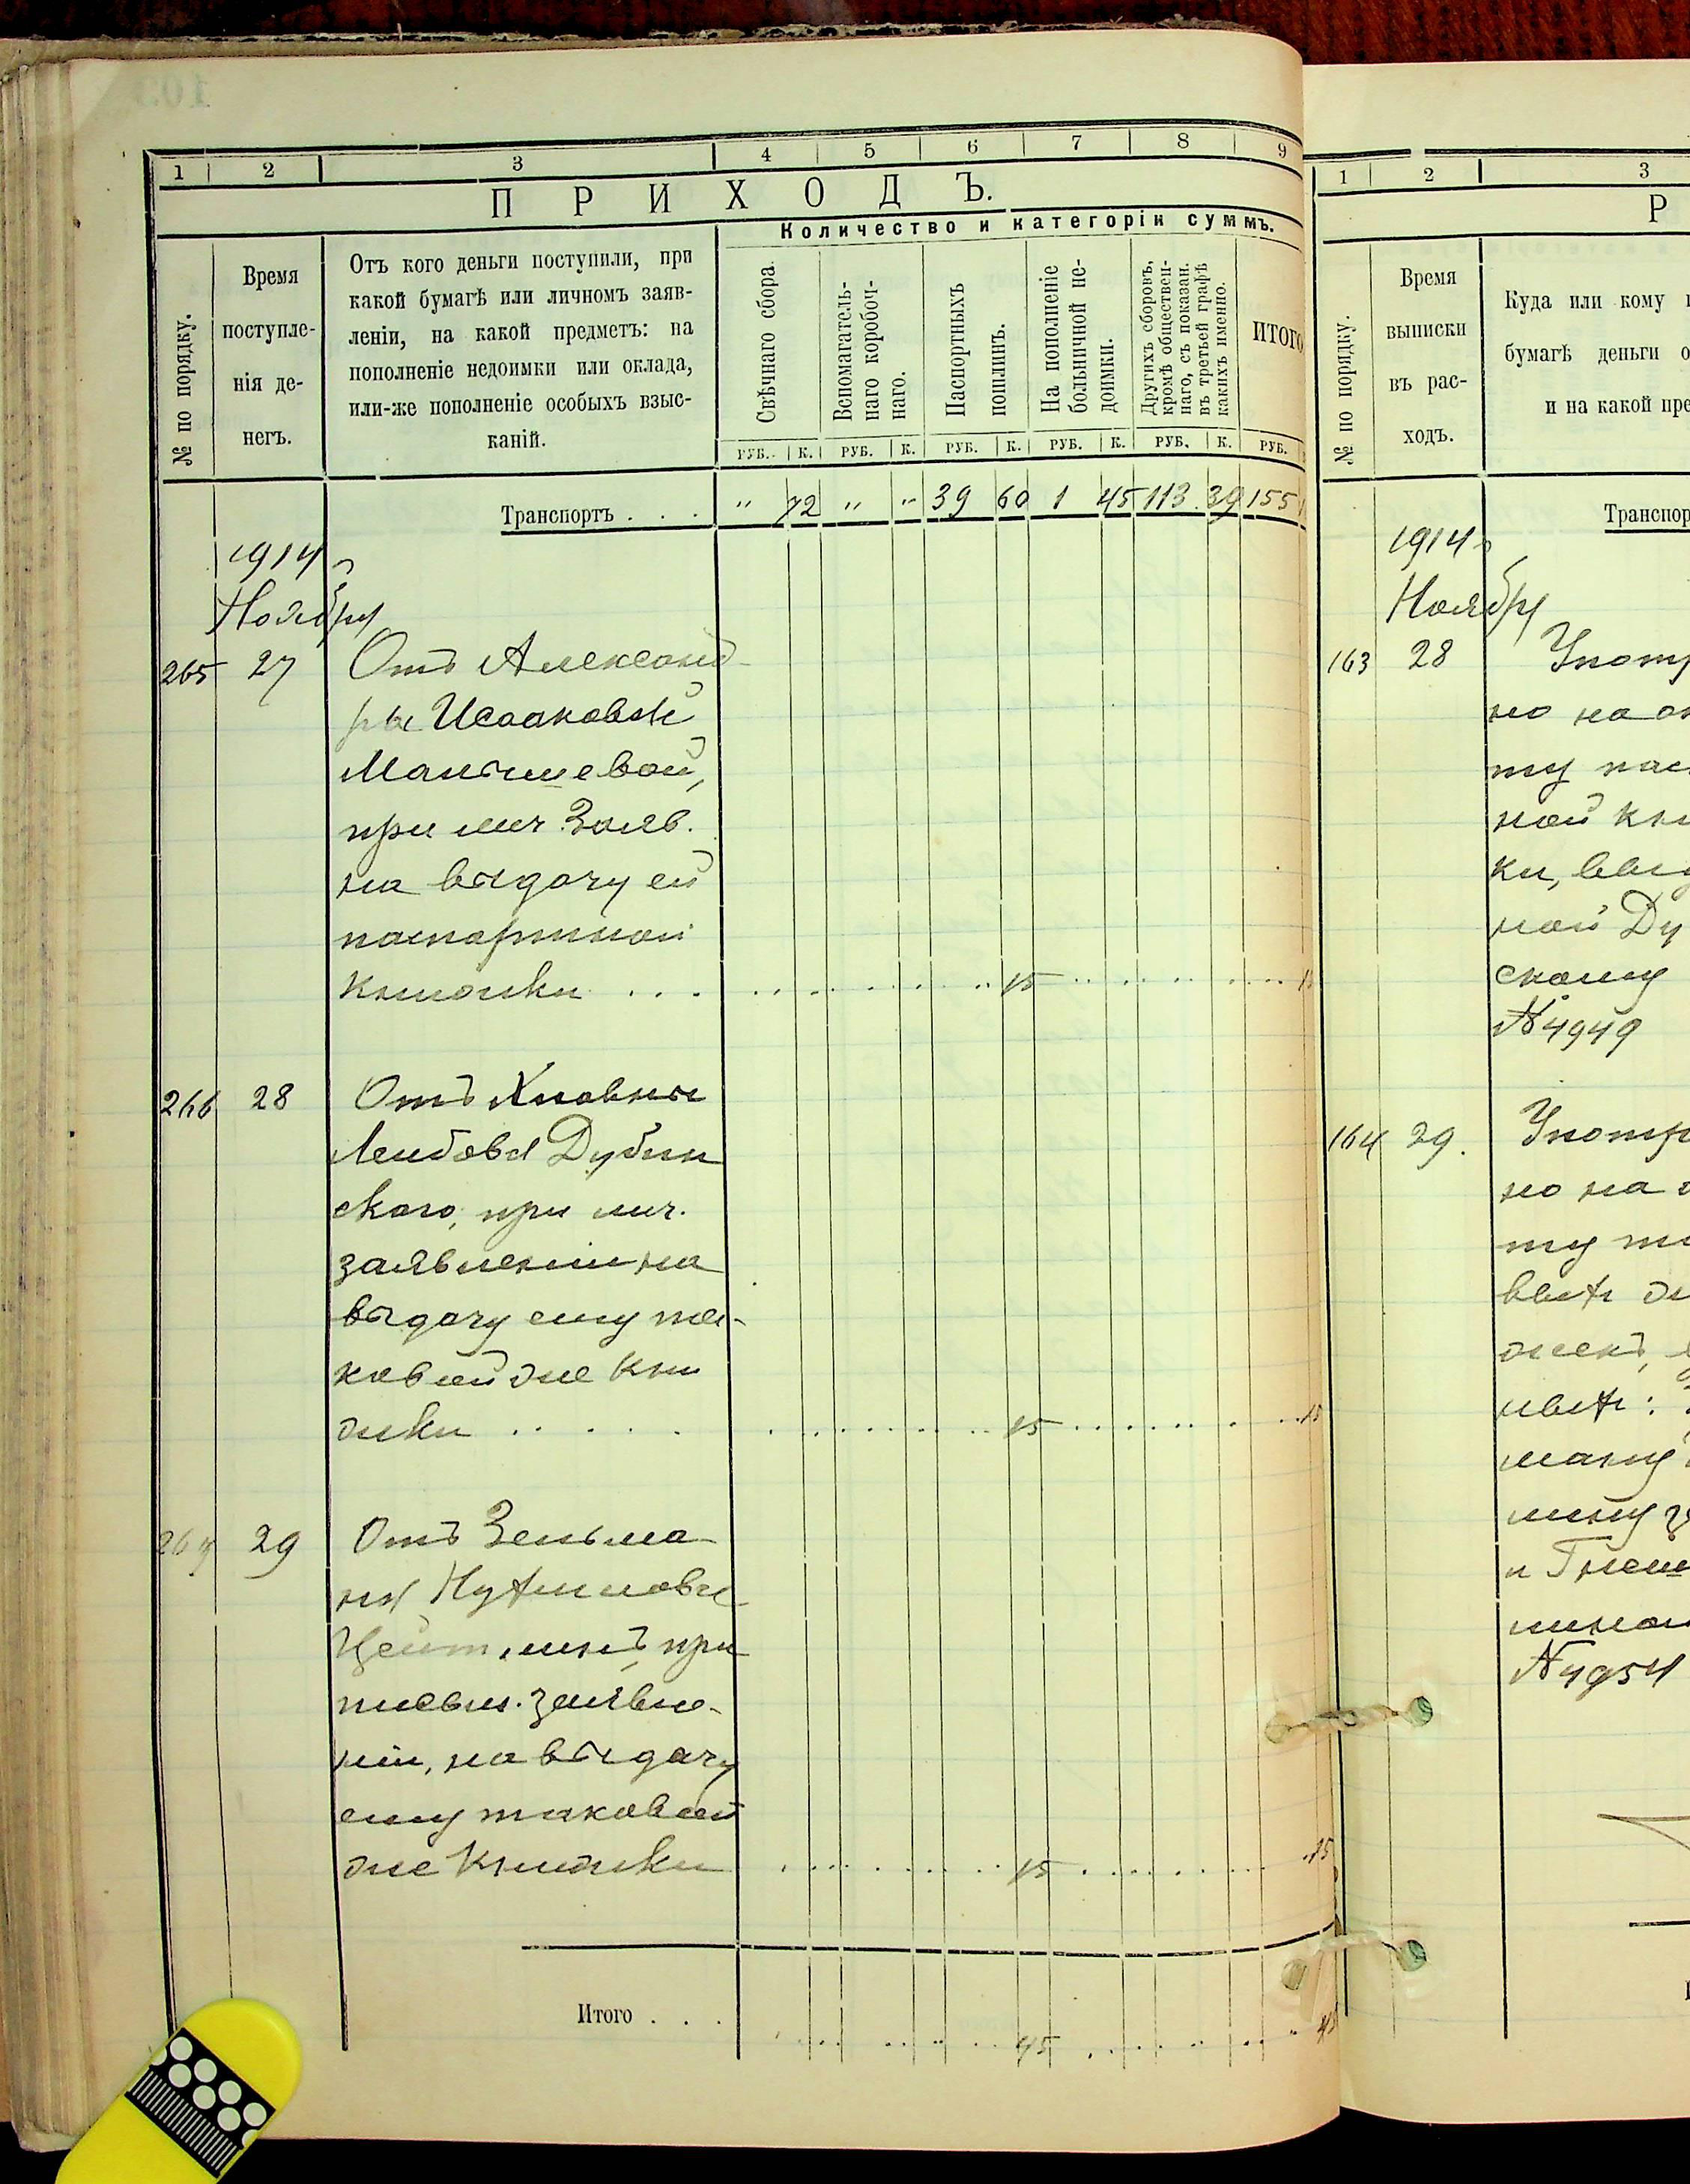 1 2 3 4 5 6 7 8 9
ПРИХОДЪ.
№ по порядку.
Время
поступле-
нія де-
негъ.
Отъ кого деньги поступили, при
какой бумагѣ или личномъ заяв-
леніи, на какой предметъ: на
пополненіе недоимки или оклада,
или-же пополненіе особыхъ взыс-
каній.
Количество и категоріи суммъ.
Свѣчнаго сбора.
Вспомагатель-
наго коробоч-
наго.
Паспортныхъ
пошлинъ.
На пополненіе
больничной не-
доимки.
Другихъ сборовъ,
кромѣ обществен-
наго, съ показан.
въ третьей графѣ
какихъ именно.
ИТОГО
РУБ. К. РУБ. К. РУБ. К. РУБ. К. РУБ. К. РУБ.
Транспортъ . . . " 72 " " 39 60 1 45 113 39 155
1914 г
Ноября
265 27 Отъ Александ-
ры Исааковой
Малышевой,
при лич. заяв.
на выдачу ей
паспортной
книжки . . . 15 15
266 28 Отъ
Лейбова Дубин
скаго, при лич.
заявленіи на
выдачу ему та-
ковой же кни
жки . . . . . 15 15
267 29 Отъ Зельма-
на
при
письм. заявле-
ніи, на выдачу
ему таковой
же книжки 15 15
Итого . . . 45 45
1 2 3
Р
№ по порядку.
Время
выписки
въ рас-
ходъ.
Куда или кому
бумагѣ деньги
и на какой пре
Транспор
1914 г
Ноября
163 28 Употр
но на оп
ту пас
ной кни
ки, выд
ной Ду
скому
№ 4949
164 29. Употр
но на
ту
выхъ
жекъ,
ныхъ:
ману
мину
и Гнеш
№ 4954